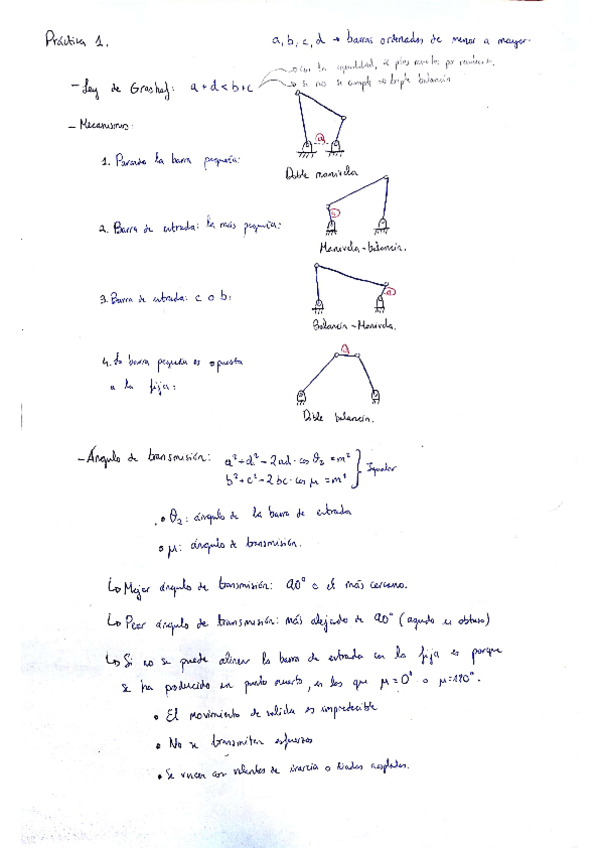 Práctica 1.
a, b, c, d → barras ordenadas de menor a mayor.
- Ley de Grashof: a+d<b+c
→ si no se cumple → triple balancín
- Mecanismos:
1. Parado la barra pequeña:
a
Doble manivela
2. Barra de entrada: la más pequeña:
a
Manivela-balancín.
3. Barra de entrada: c o b:
a
Balancín-Manivela.
4. La barra pequeña es opuesta
a la fija:
a
Doble balancín.
- Ángulo de transmisión: a²+d²-2ad·cos θ₂ = m²
b²+c²-2bc·cos μ = m²
Igualar
• θ₂: ángulo de la barra de entrada
• μ: ángulo de transmisión.
↳ Mejor ángulo de transmisión: 90° o el más cercano.
↳ Peor ángulo de transmisión: más alejado de 90° (agudo u obtuso)
↳ Si no se puede alinear la barra de entrada con la fija es porque
se ha producido un punto muerto, en los que μ=0° o μ=180°.
• El movimiento de salida es impredecible
• No se transmiten esfuerzos
• Se vencen con volantes de inercia o díadas acopladas.